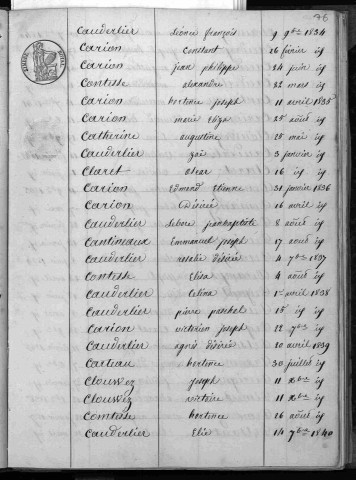 76
Cauderlier Léonce françois 9 9bre 1834
Carion Constant 26 février id
Carion jean philippe 24 juin id
Contesse alexandre 22 mars id
Carion hortence joseph 11 avril 1835
Carion marie eloze 25 août id
Catherine augustine 25 mai id
Cauderlier zoé 3 janvier id
Claret oscar 16 id id
Carion Edmond Etienne 31 janvier 1836
Carion Désirée 16 avril id
Cauderlier jeanbaptiste 8 août id
Cantineaux Emmanuel joseph 17 août id
Cauderlier rosalie désirée 4 7bre 1837
Contesse Elisa 4 août id
Cauderlier Celina 1er avril 1838
Cauderlier pierre 15 id id
Carion victorien joseph 22 7bre id
Cauderlier agnès désirée 20 avril 1839
Carteau hortence 30 juillet id
Clouwez joseph 11 Xbre id
Clouwez victoire 11 Xbre id
Comtesse hortence 26 août id
Cauderlier Elie 14 7bre 1840